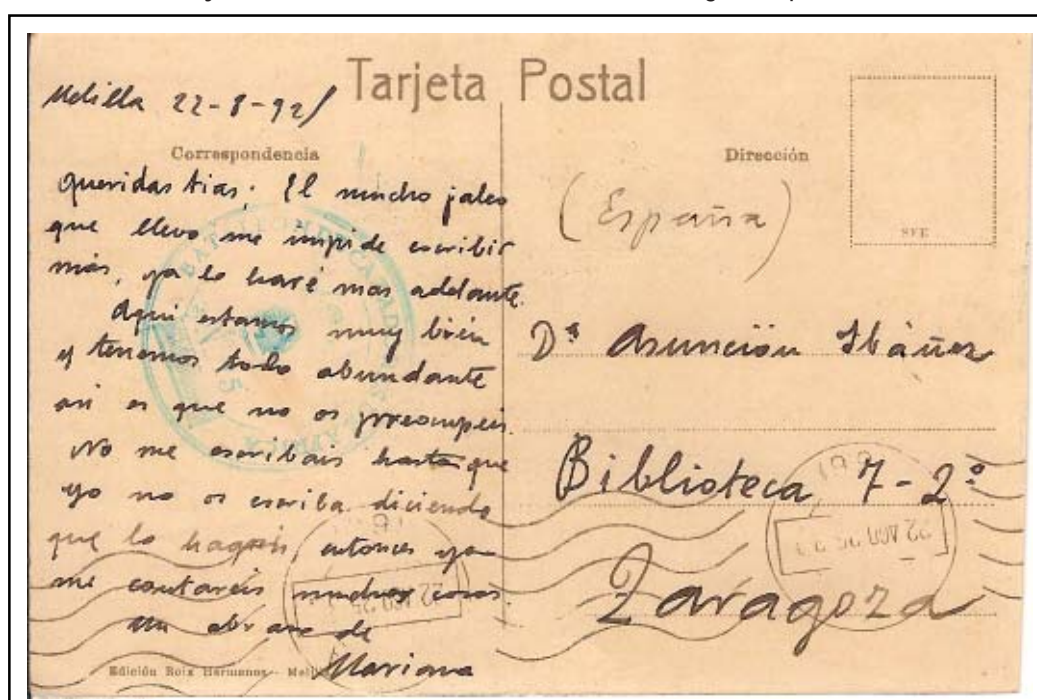 Tarjeta Postal
Melilla 22-8-92/
Correspondencia
Dirección
queridas tias: El mucho jaleo
que llevo me impide escribir
más, ya lo haré mas adelante.
Aqui estamos muy bién
y tenemos todo abundante
asi es que no os preocupeis.
No me escribais hasta que
yo no os escriba diciendo
que lo hagais, entonces ya
me contareis muchas cosas.
un abrazo de
Mariana
Edición Boix Hermanos - Melilla
(España)
Dª Asunción Ibáñez
Biblioteca 7-2º
Zaragoza
22 AGO 25